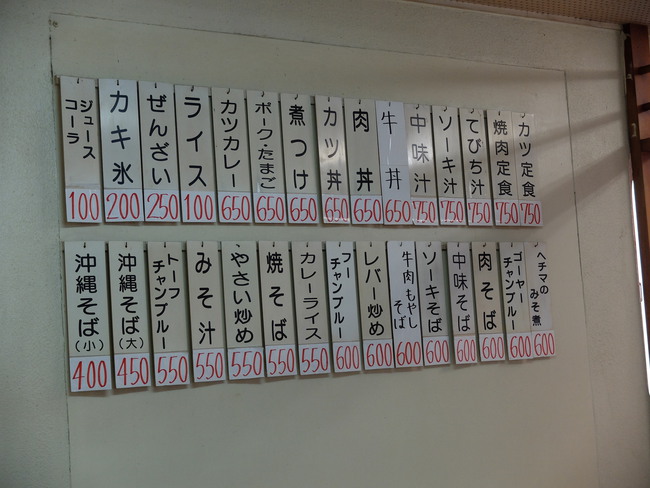 カツ定食 750
焼肉定食 750
てびち汁 750
ソーキ汁 750
中味汁 750
牛丼 650
肉丼 650
カツ丼 650
煮つけ 650
ポーク・たまご 650
カツカレー 650
ライス 100
ぜんざい 250
カキ氷 200
ジュース
コーラ 100
ヘチマの
みそ煮 600
ゴーヤー
チャンプルー 600
肉そば 600
中味そば 600
ソーキそば 600
牛肉もやし
そば 600
レバー炒め 600
フー
チャンプルー 600
カレーライス 550
焼そば 550
やさい炒め 550
みそ汁 550
トーフ
チャンプルー 550
沖縄そば(大) 450
沖縄そば(小) 400